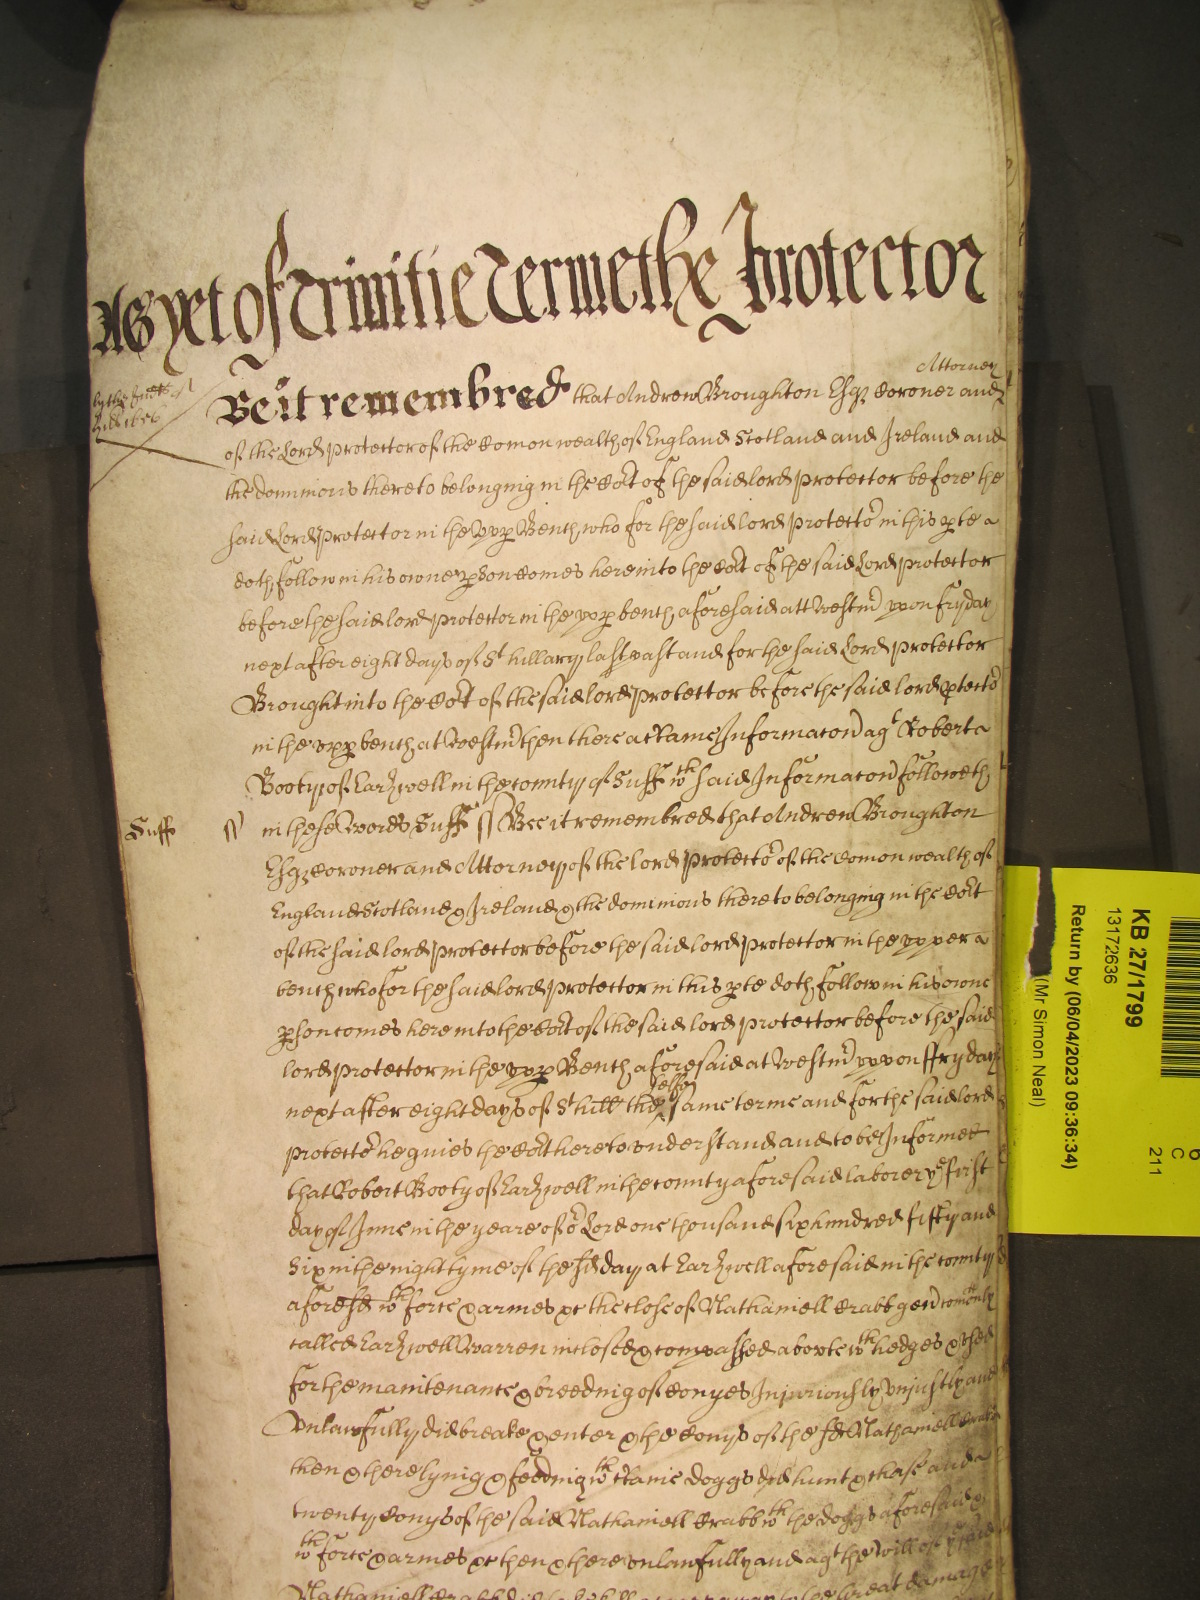 As yet of Trinitie Terme the Protector
Attorney
Be it remembred that Andrew Broughton Esqr Coroner and
of the Lord Protector of the Comonwealth of England Scotland and Ireland and
the dominions thereto belonging in the Cort of the said lord protector before the
said Lord Protector in the vpp Bench who for the said lord protector in this pte
doth follow in his owne pson comes here into the Cort of the said Lord protector
before the said lord protector in the vpp bench aforesaid att Westm vpon fryday
next after eight days of St hillary last past and for the said Lord protector
Brought into the Cort of the said lord protector before the said lord ptector
in the vpp bench at Westm then there a certaine Informacon agt Robert
Booty of Eariswell in the county of Suff wch said Informacon followeth
Suff ss in these words Suff ss Bee it remembred that Andrew Broughton
Esqr Coroner and Attorney of the lord protector of the Comonwealth of
England Scotland & Ireland & the dominions thereto belonging in the Cort
of the said lord protector before the said lord protector in the vpper
bench who for the said lord protector in this pte doth follow in his owne
pson comes here into the Cort of the said lord protector before the said
lord protector in the vpp Bench aforesaid at Westm vpon ffryday
next after eight days of St hill the selfe same terme and for the said lord
protector he giues the Cort here to vnderstand and to be Informed
that Robert Booty of Eariswell in the county aforesaid laborer ye first
day of June in the yeare of or Lord one thousand six hundred fifty and
Six in the night tyme of the sd day at Eariswell aforesaid in the county
aforesd wth force & armes &c the close of Nathaniell Crabb gent comonly
called Eariswell Warren inclosed & compassed aboute wth hedges & vsed
for the maintenance & breeding of Conyes Iniuriously vniustly and
Vnlawfully did breake & enter & the Conys of the sd Nathaniell Crabb
then & there lying & feeding wth certaine doggs did hunt & chase and
twenty Conys of the said Nathaniell Crabb wth the doggs aforesaid &
wth force & armes &c then & there vnlawfully and agt the will of ye said
Nathaniell Crabb did great damage
KB 27/1799
13172636
Return by (06/04/2023 09:36:34)
(Mr Simon Neal)
6
C
211